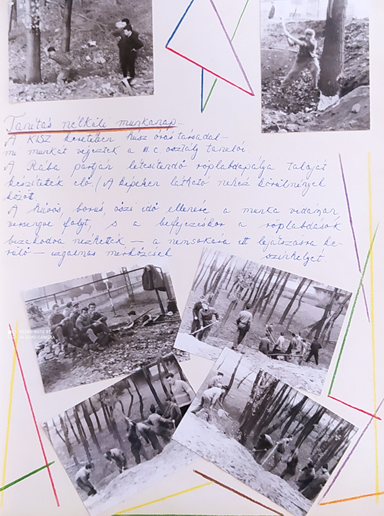 Tanítás nélküli munkanap
A KISZ keretében húsz órás társadal-
mi munkát végeztek a II. C osztály tanulói
A Rába partján létesítendő röplabdapálya talaját
készítették elő, (A képeken látható nehéz körülmények
között.
A hűvös, borús, őszi idő ellenére a munka vidáman,
versenge folyt, s a befejezéskor a röplabdások
büszkén nézhettek — a nemsokára itt lejátszásra ke-
rülő — izgalmas mérkőzések színhelyét.